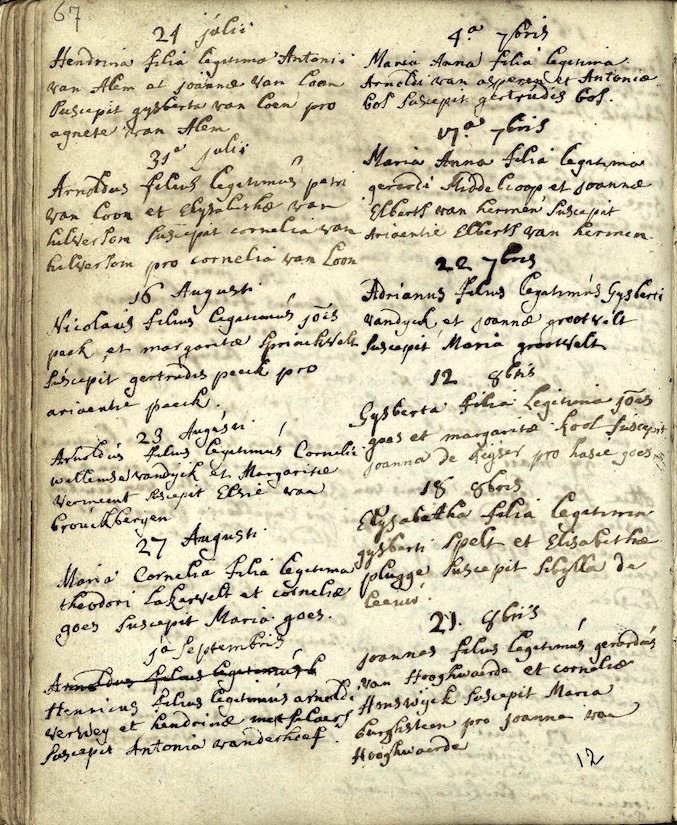 67
21 julii
Hendrina filia legitima Antonii
van Alem et joannæ van Loon
suscepit gysberta van Loen pro
agnete van Alem
31ª julii
Arnoldus filius legitimus petri
van Loon et Elysabethæ van
hilversom suscepit cornelia van
hilversom pro cornelia van Loon
16 Augusti
Nicolaus filius legitimus jões
peek et margaritæ
suscepit gertrudis peeck pro
ariaentie peeck.
23 Augusti
Arnoldus filius legitimus Cornelii
willemse vandyck et Margaritæ
vermeent suscepit Elsie van
brouckbergen
27 Augusti
Maria Cornelia filia legitima
theodori Lakervelt et corneliæ
goes suscepit Maria goes.
jª septembris
Arnoldus filius legitimus
Henricus filius legitimus arnoldi
verwey et hendrinæ
suscepit Antonia vanderhoef.
4ª 7bris
Maria Anna filia legitima
Arnoldi van asperen et Antoniæ
bol suscepit gertrudis bol.
17ª 7bris
Maria Anna filia legitima
gerardi Middelcoop et joannæ
Elberth van hermen suscepit
Ariaentie Elberth van hermen.
22 7bris
Adrianus filius legitimus Gysberti
vandyck et joannæ grootvelt
suscepit Maria grootvelt
12 8bris
Gysberta filia Legitima jões
goes et margaritæ kool suscepit
joanna de keyser pro hasie goes
18 8bris
Elysabetha filia legitima
gysberti spelt et Elisabethæ
plugge suscepit sibylla de
leeuw.
21. 8bris
joannes filius legitimus gerardus
van Hooghwaerde et corneliæ
Arnswyck suscepit Maria
burghsteen pro joanna van
Hooghwaerde
12